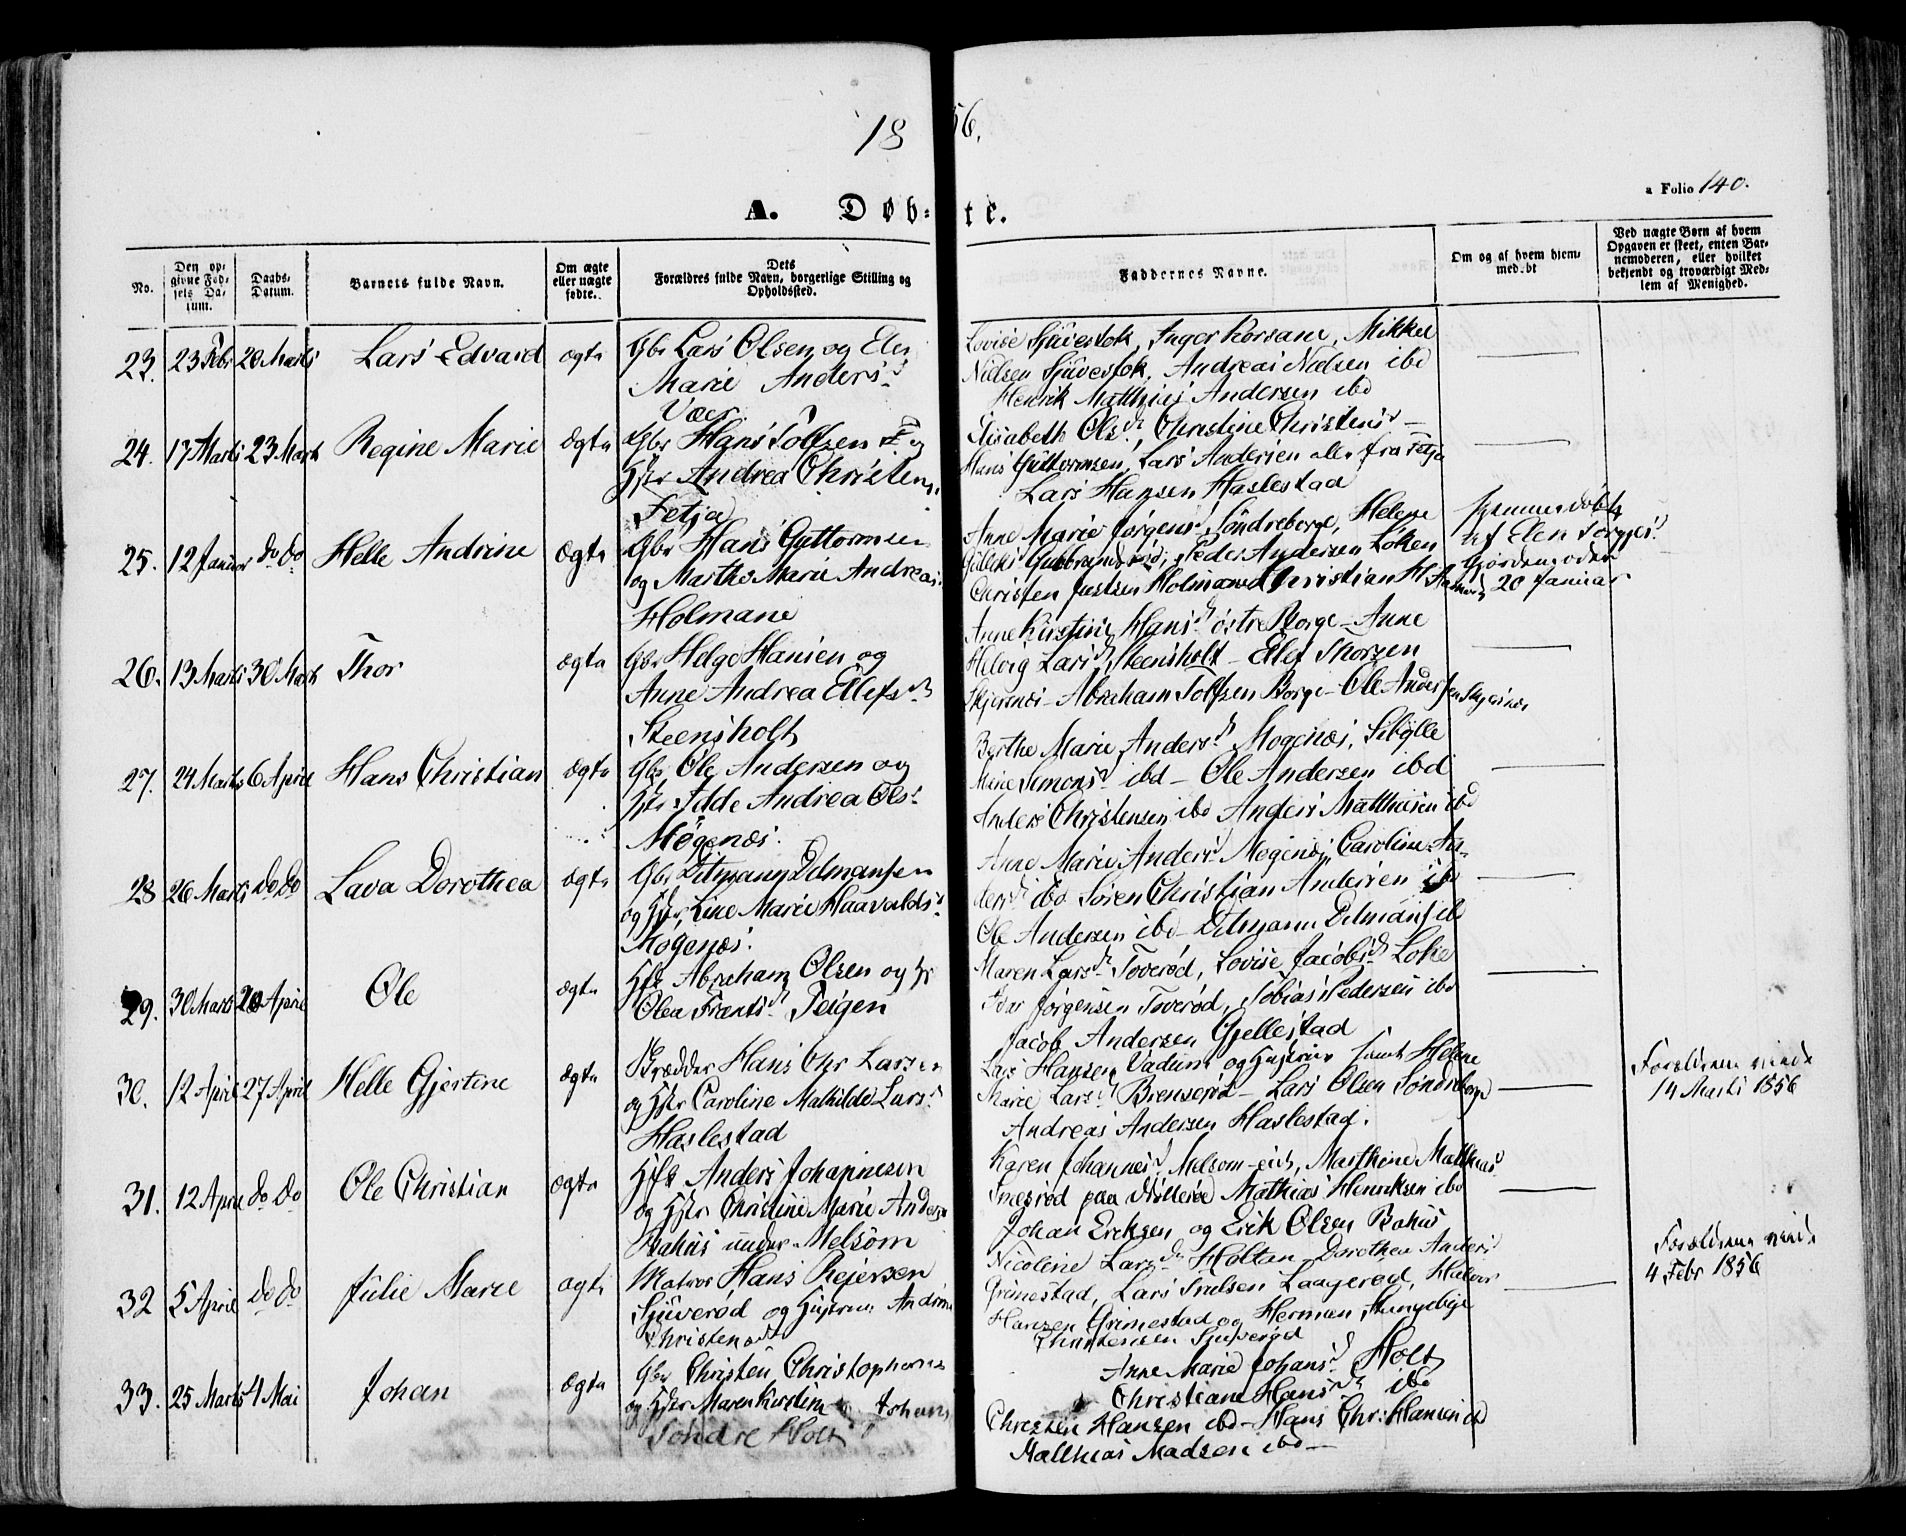 18 56.
a Folio 140.
A. Døb- te.
No.
Den opgivne Fødsels Datum.
Daabs-Datum.
Barnets fulde Navn.
Om ægte eller uægte fødte.
Dets Forældres fulde Navn, borgerlige Stilling og Opholdssted.
Faddernes Navne.
Om og af hvem hjemmedøbt
Ved uægte Børn af hvem Opgaven er skeet, enten Barnemoderen, eller hvilket bekjendt og troværdigt Medlem af Menighed.
23. 23 Febr 20 Marts Lars Edvard ægte Gbr Lars Olsen og Elen
Marie Andersd
Vær
Lovise Sjuvestok, Inger Korsane, Mikkel
Nielsen Sjuvestok, Andreas Nielsen ibd
Henrik Matthias Andersen ibd
24. 17 Marts 23 Marts Regine Marie ægte Gbr Hans Tolfsen F og
Hstr Andrea Christens
Fetja
Elisabeth Olsd, Christine Christensd
Hans Guttormsen, Lars Andersen alle fra Fetja
Lars Hansen Haslestad
25. 12 Januar do do Helle Andrine ægte Gbr Hans Guttormsen
og Marthe Marie Andreas
Holmane
Anne Marie Jørgensd Søndreborge, Helene
Gulliks Gulbrandsrød, Peder Andersen Løken
Christen Justsen Holmane Christian H
hjemmedøbt
af Elen Torgjersd
Gjordemoder
20 Januar
26. 13 Marts 30 Marts Thor ægte Gbr Helge Hansen og
Anne Andrea Ellefsd
Steensholt
Anne Kirstine Hansd østre Borge - Anne
Helvig Larsd Steensholt - Ellef Thorsen
Skjersnæs - Abraham Tolfsen Borge - Ole Andersen Skjersnæs
27. 24 Marts 6 April Hans Christian ægte Gbr Ole Andersen og
Hstr Idde Andrea Ols
Mogenæs.
Berthe Marie Andersd Mogenæs, Sibylle
Marie Simonsd ibd - Ole Andersen ibd
Anders Christensen ibd Anders Matthisen ibd
28 26 Marts do do Lava Dorothea ægte Gbr Ditmann Ditmansen
og Hstr Line Marie Haavaldsd
Mogenæs.
Anne Marie Andersd Mogenæs Caroline An-
dersd ibd Søren Christian Andersen ibd
Ole Andersen ibd - Ditmann Ditmans ibd
29. 30 Marts 20 April Ole ægte Hfd Abraham Olsen og H
Olea Frantsd Teigen
Maren Larsd Toverød, Lovise Jacobsd Løke
Ivar Jørgensen Toverød, Tobias Pedersen ibd
Jacob Andersen Gjellestad
30. 12 April 27 April Helle Gjertine ægte Skrædder Hans Chr Larsen
og Hstr Caroline Mathilde Lars
Haslestad
Lars Hansen Vadum og Hustrue samt Helene
Marie Larsd Brenserød - Lars Olsen Søndreborge
Andreas Andersen Haslestad.
Forældrene viede
14 Marts 1856
31. 12 April do do Ole Christian ægte Hfd Anders Johannesen
og Hstr Christine Marie Anders
Bakus under Melsom
Karen Johannesd Melsom-eie, Marthine Matthias
Snesrød paa Møllerød Mathias Henriksen ibd
Johan Eriksen og Erik Olsen Bakus
32 5 April do do Julie Marie ægte Matros Hans Rejersen
Sjuverød og Hustrue Andrine
Christensd
Nicoline Larsd Holtan Dorothea Anders
Grimestad, Lars Trulsen Laagerød, Halvor
Hansen Grimestad og Herman Stangebye
Christensen Sjuverød
Forældrene viede
4 Febr 1856
33. 25 Marts 4 Mai Johan ægte Gbr Christen Christophersen
og Hstr Maren Kirstine Johans
Søndre Holt
Anne Marie Johansd Holt
Christiane Hansd ibd
Christen Hansen ibd - Hans Chr: Hansen ibd
Matthias Madsen ibd